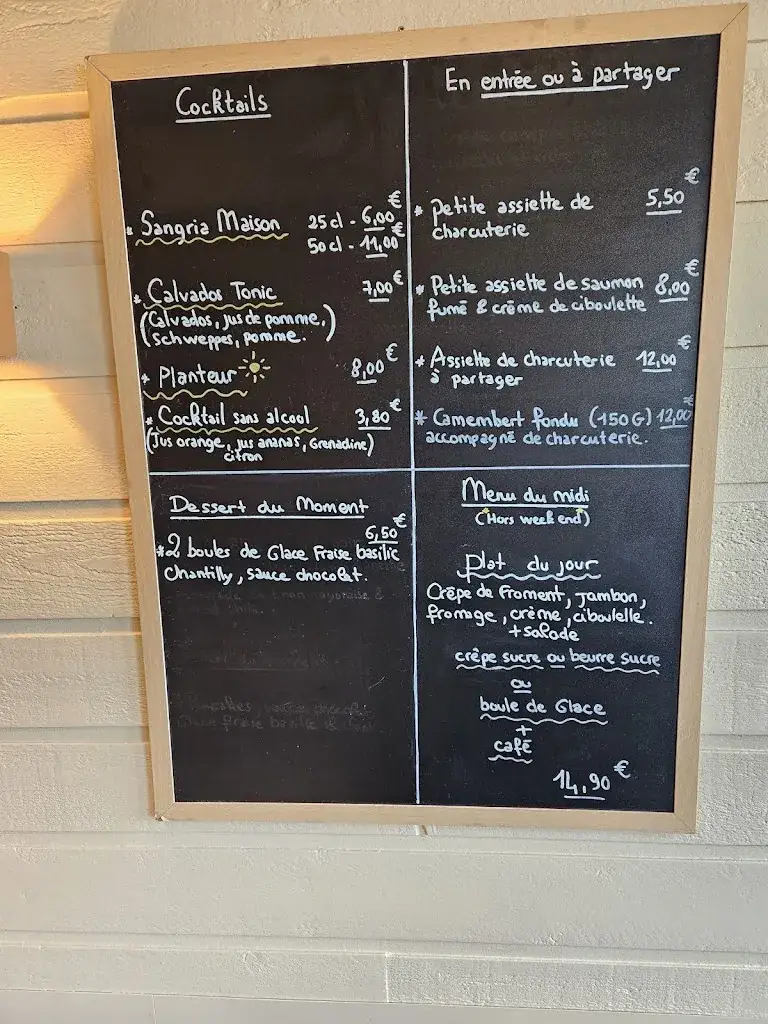 Cocktails
* Sangria Maison 25 cl - 6,00€
50 cl - 11,00€
* Calvados Tonic 7,00€
(Calvados, jus de pomme,
schweppes, pomme.)
* Planteur 8,00€
* Cocktail sans alcool 3,80€
(Jus orange, jus ananas, Grenadine)
citron
En entrée ou à partager
* Petite assiette de 5,50€
charcuterie
* Petite assiette de saumon 8,00€
fumé & crème de ciboulette
* Assiette de charcuterie 12,00€
à partager
* Camembert fondu (150G) 12,00€
accompagné de charcuterie.
Dessert du Moment
6,50€
*2 boules de Glace Fraise basilic
Chantilly, sauce chocolat.
Menu du midi
(Hors week end)
Plat du jour
Crêpe de Froment, Jambon,
fromage, crème, ciboulette.
+ salade
crêpe sucre ou beurre sucre
ou
boule de Glace
+
café
14,90€